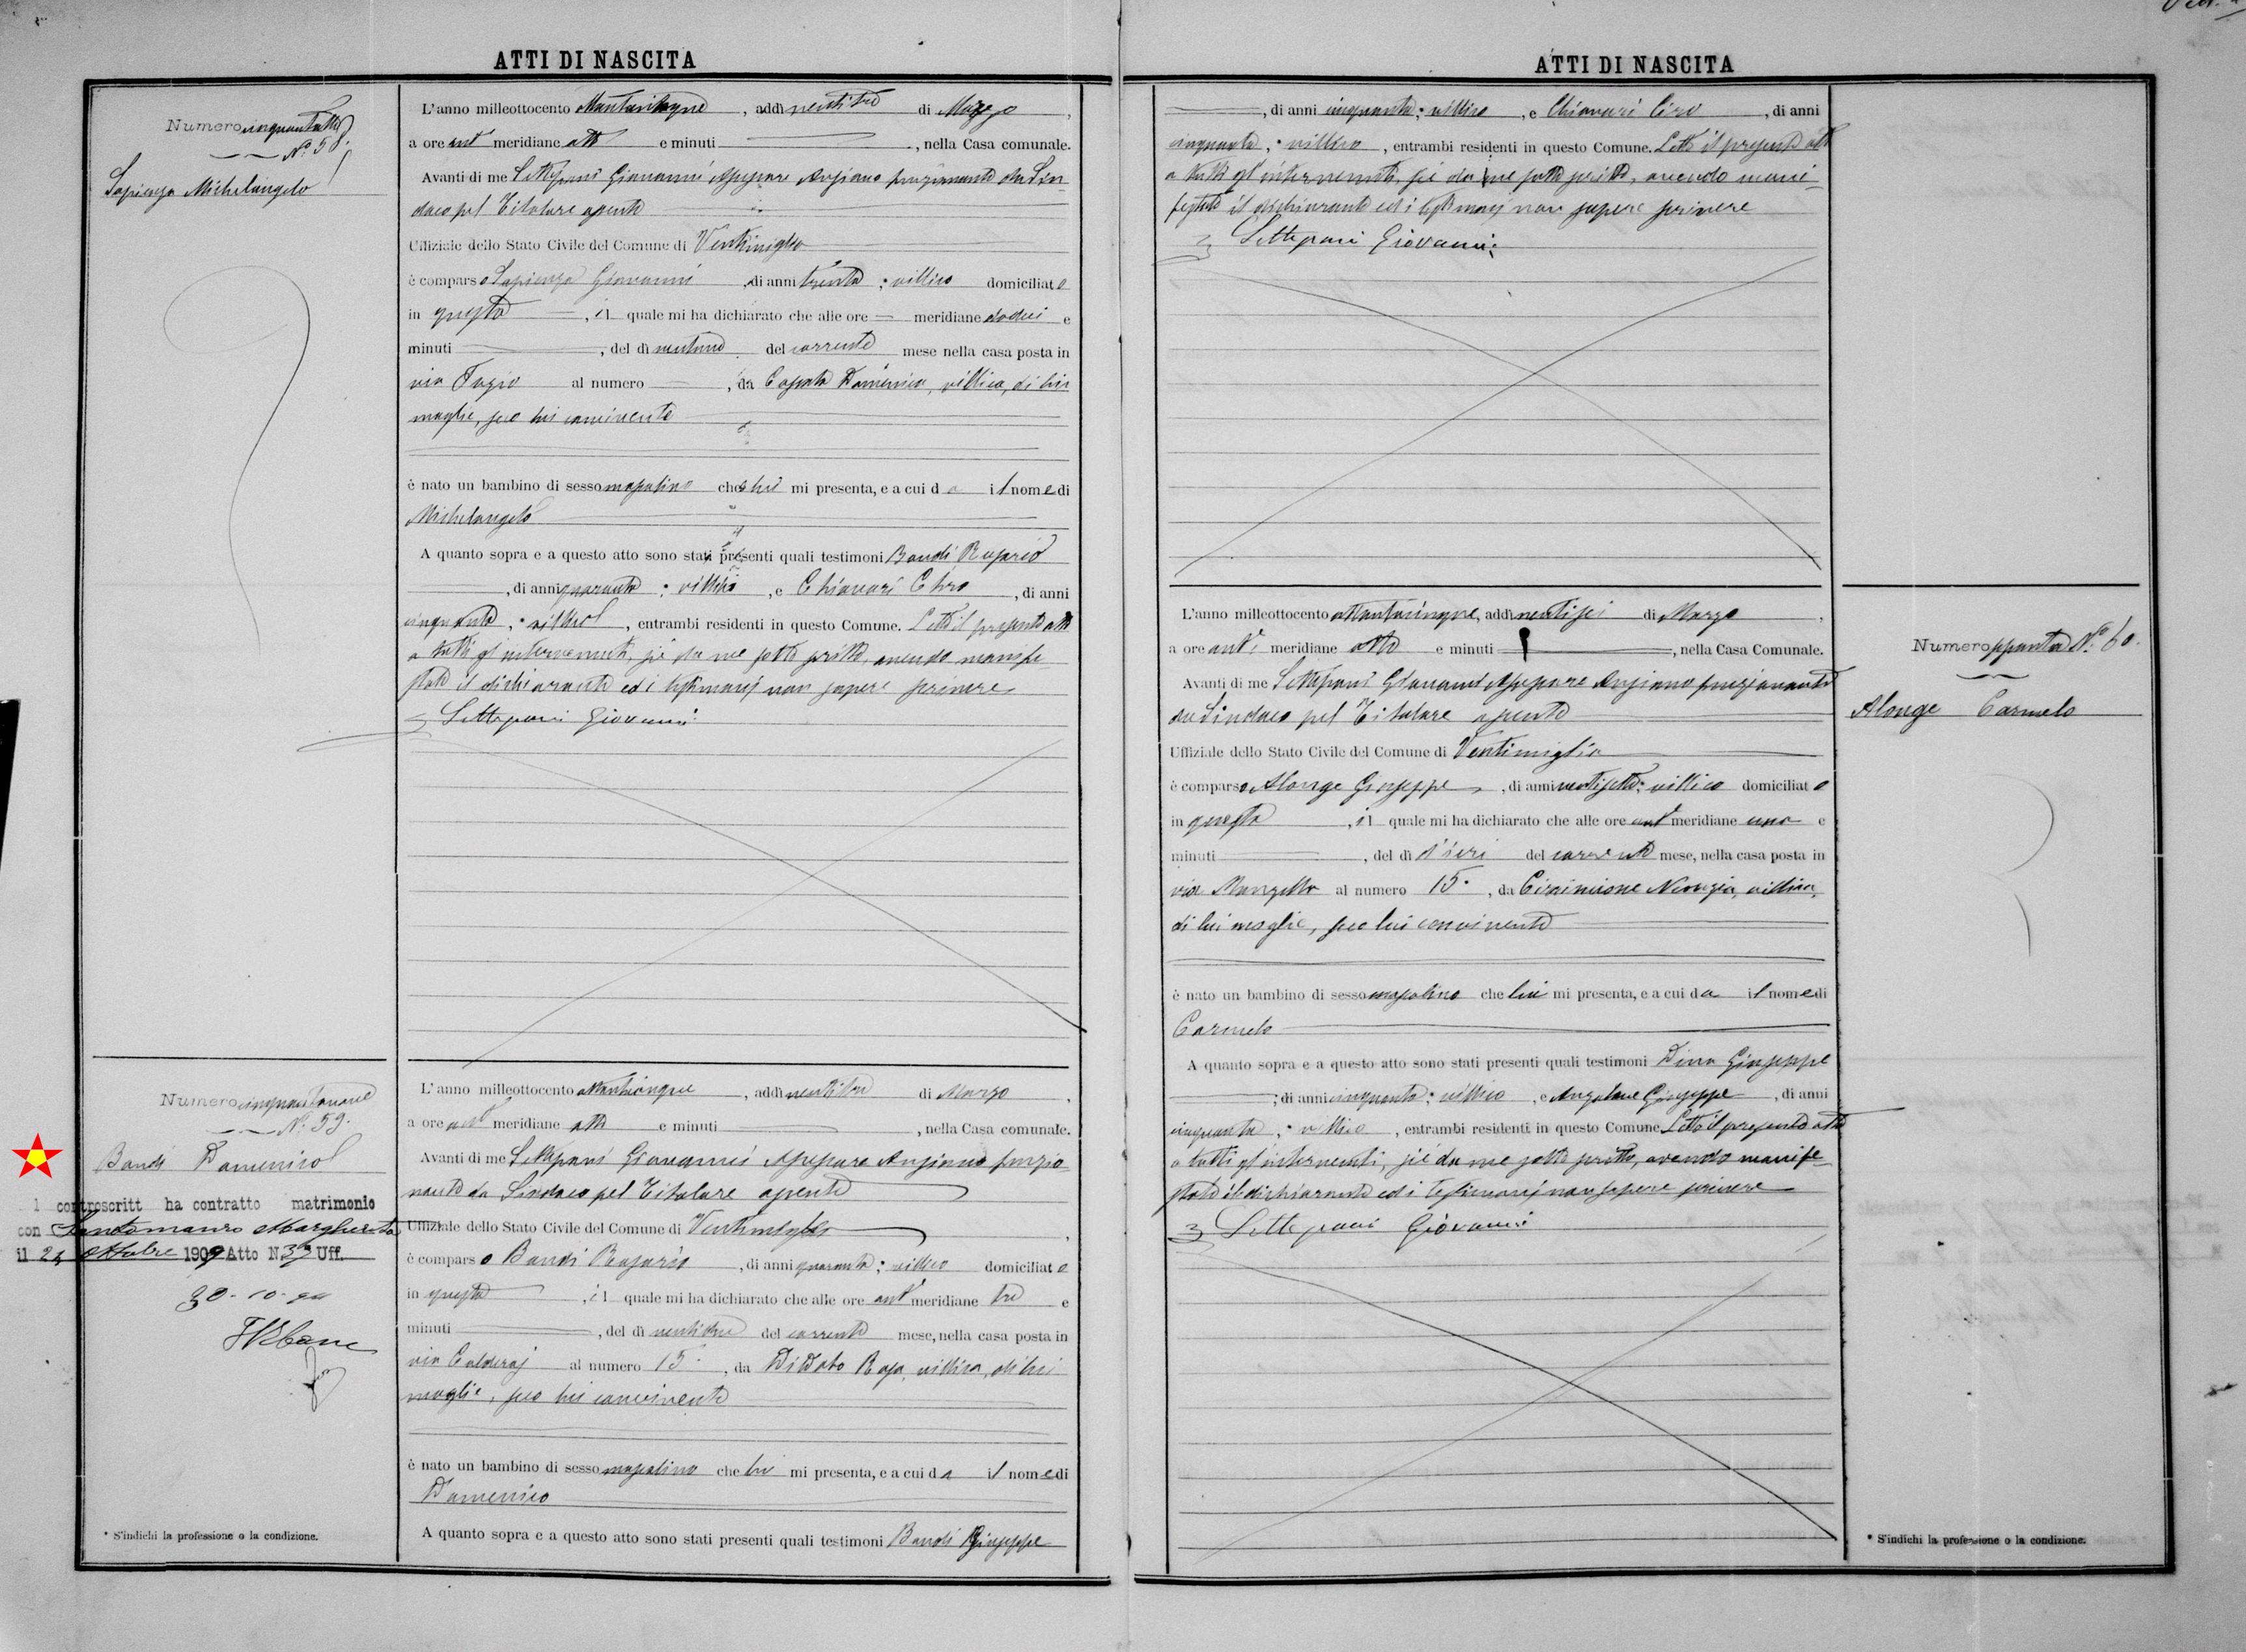 ATTI DI NASCITA
Numero cinquantotto
N. 58
Sapienza Michelangelo
L'anno milleottocento ottantacinque, addì ventitre di Marzo,
a ore ant meridiane otto e minuti, nella Casa comunale.
Avanti di me Settepani Giovanni Assessore Anziano funzionante da Sin-
daco pel Titolare assente
Uffiziale dello Stato Civile del Comune di Ventimiglia
è comparso Sapienza Giovanni, di anni trenta; villico domiciliato
in questa, il quale mi ha dichiarato che alle ore meridiane dodici e
minuti, del dì ventuno del corrente mese nella casa posta in
via al numero, da Domenica, villica, di lui
moglie, seco lui convivente
è nato un bambino di sesso mascolino che lui mi presenta, e a cui da il nome di
Michelangelo
A quanto sopra e a questo atto sono stati presenti quali testimoni Bandì Rosario
, di anni quaranta; villico, e Chiavari Ciro, di anni
cinquanta, villico, entrambi residenti in questo Comune. Letto il presente atto
a tutti gl'intervenuti, si è da me sottoscritto, avendo manife-
stato il dichiarante ed i testimonj non sapere scrivere
Settepani Giovanni
Numero cinquantanove
N. 59.
Bandì Domenico
l controscritt ha contratto matrimonio
con Santomauro Margherita
il 24 Ottobre 1909 Atto N. 39 Uff.
L'anno milleottocento ottantacinque, addì ventitre di Marzo,
a ore ant meridiane otto e minuti, nella Casa comunale.
Avanti di me Settepani Giovanni Assessore Anziano funzio-
nante da Sindaco pel Titolare assente
Uffiziale dello Stato Civile del Comune di Ventimiglia,
è comparso Bandì Rosario, di anni quaranta; villico domiciliato
in questa, il quale mi ha dichiarato che alle ore ant meridiane tre e
minuti, del dì ventidue del corrente mese, nella casa posta in
via Calderaj al numero 15, da Di Dato Rosa, villica, di lui
moglie, seco lui convivente
è nato un bambino di sesso mascolino che lui mi presenta, e a cui da il nome di
Domenico
A quanto sopra e a questo atto sono stati presenti quali testimoni Bandì Giuseppe
* S'indichi la professione o la condizione.
ATTI DI NASCITA
, di anni cinquanta; villico, e Chiavari Ciro, di anni
cinquanta, villico, entrambi residenti in questo Comune. Letto il presente atto
a tutti gl'intervenuti, si è da me sottoscritto, avendo mani-
festato il dichiarante ed i testimonj non sapere scrivere
Settepani Giovanni
L'anno milleottocento ottantacinque, addì ventisei di Marzo,
a ore anti meridiane otto e minuti, nella Casa Comunale.
Avanti di me Settepani Giovanni Assessore Anziano funzionante
da Sindaco pel Titolare assente
Uffiziale dello Stato Civile del Comune di Ventimiglia
è comparso Alonge Giuseppe, di anni ventisette; villico domiciliato
in questa, il quale mi ha dichiarato che alle ore ant meridiane una e
minuti, del dì d'ieri del corrente mese, nella casa posta in
via al numero 15, da Nunzia, villica,
di lui moglie, seco lui convivente
è nato un bambino di sesso mascolino che lui mi presenta, e a cui da il nome di
Carmelo
A quanto sopra e a questo atto sono stati presenti quali testimoni Giuseppe
; di anni cinquanta; villico, e Giuseppe, di anni
cinquanta, villico, entrambi residenti in questo Comune. Letto il presente atto
a tutti gl'intervenuti, si è da me sottoscritto, avendo manife-
stato il dichiarante ed i testimonj non sapere scrivere
Settepani Giovanni
Numero sessanta N. 60.
Alonge Carmelo
* S'indichi la professione o la condizione.